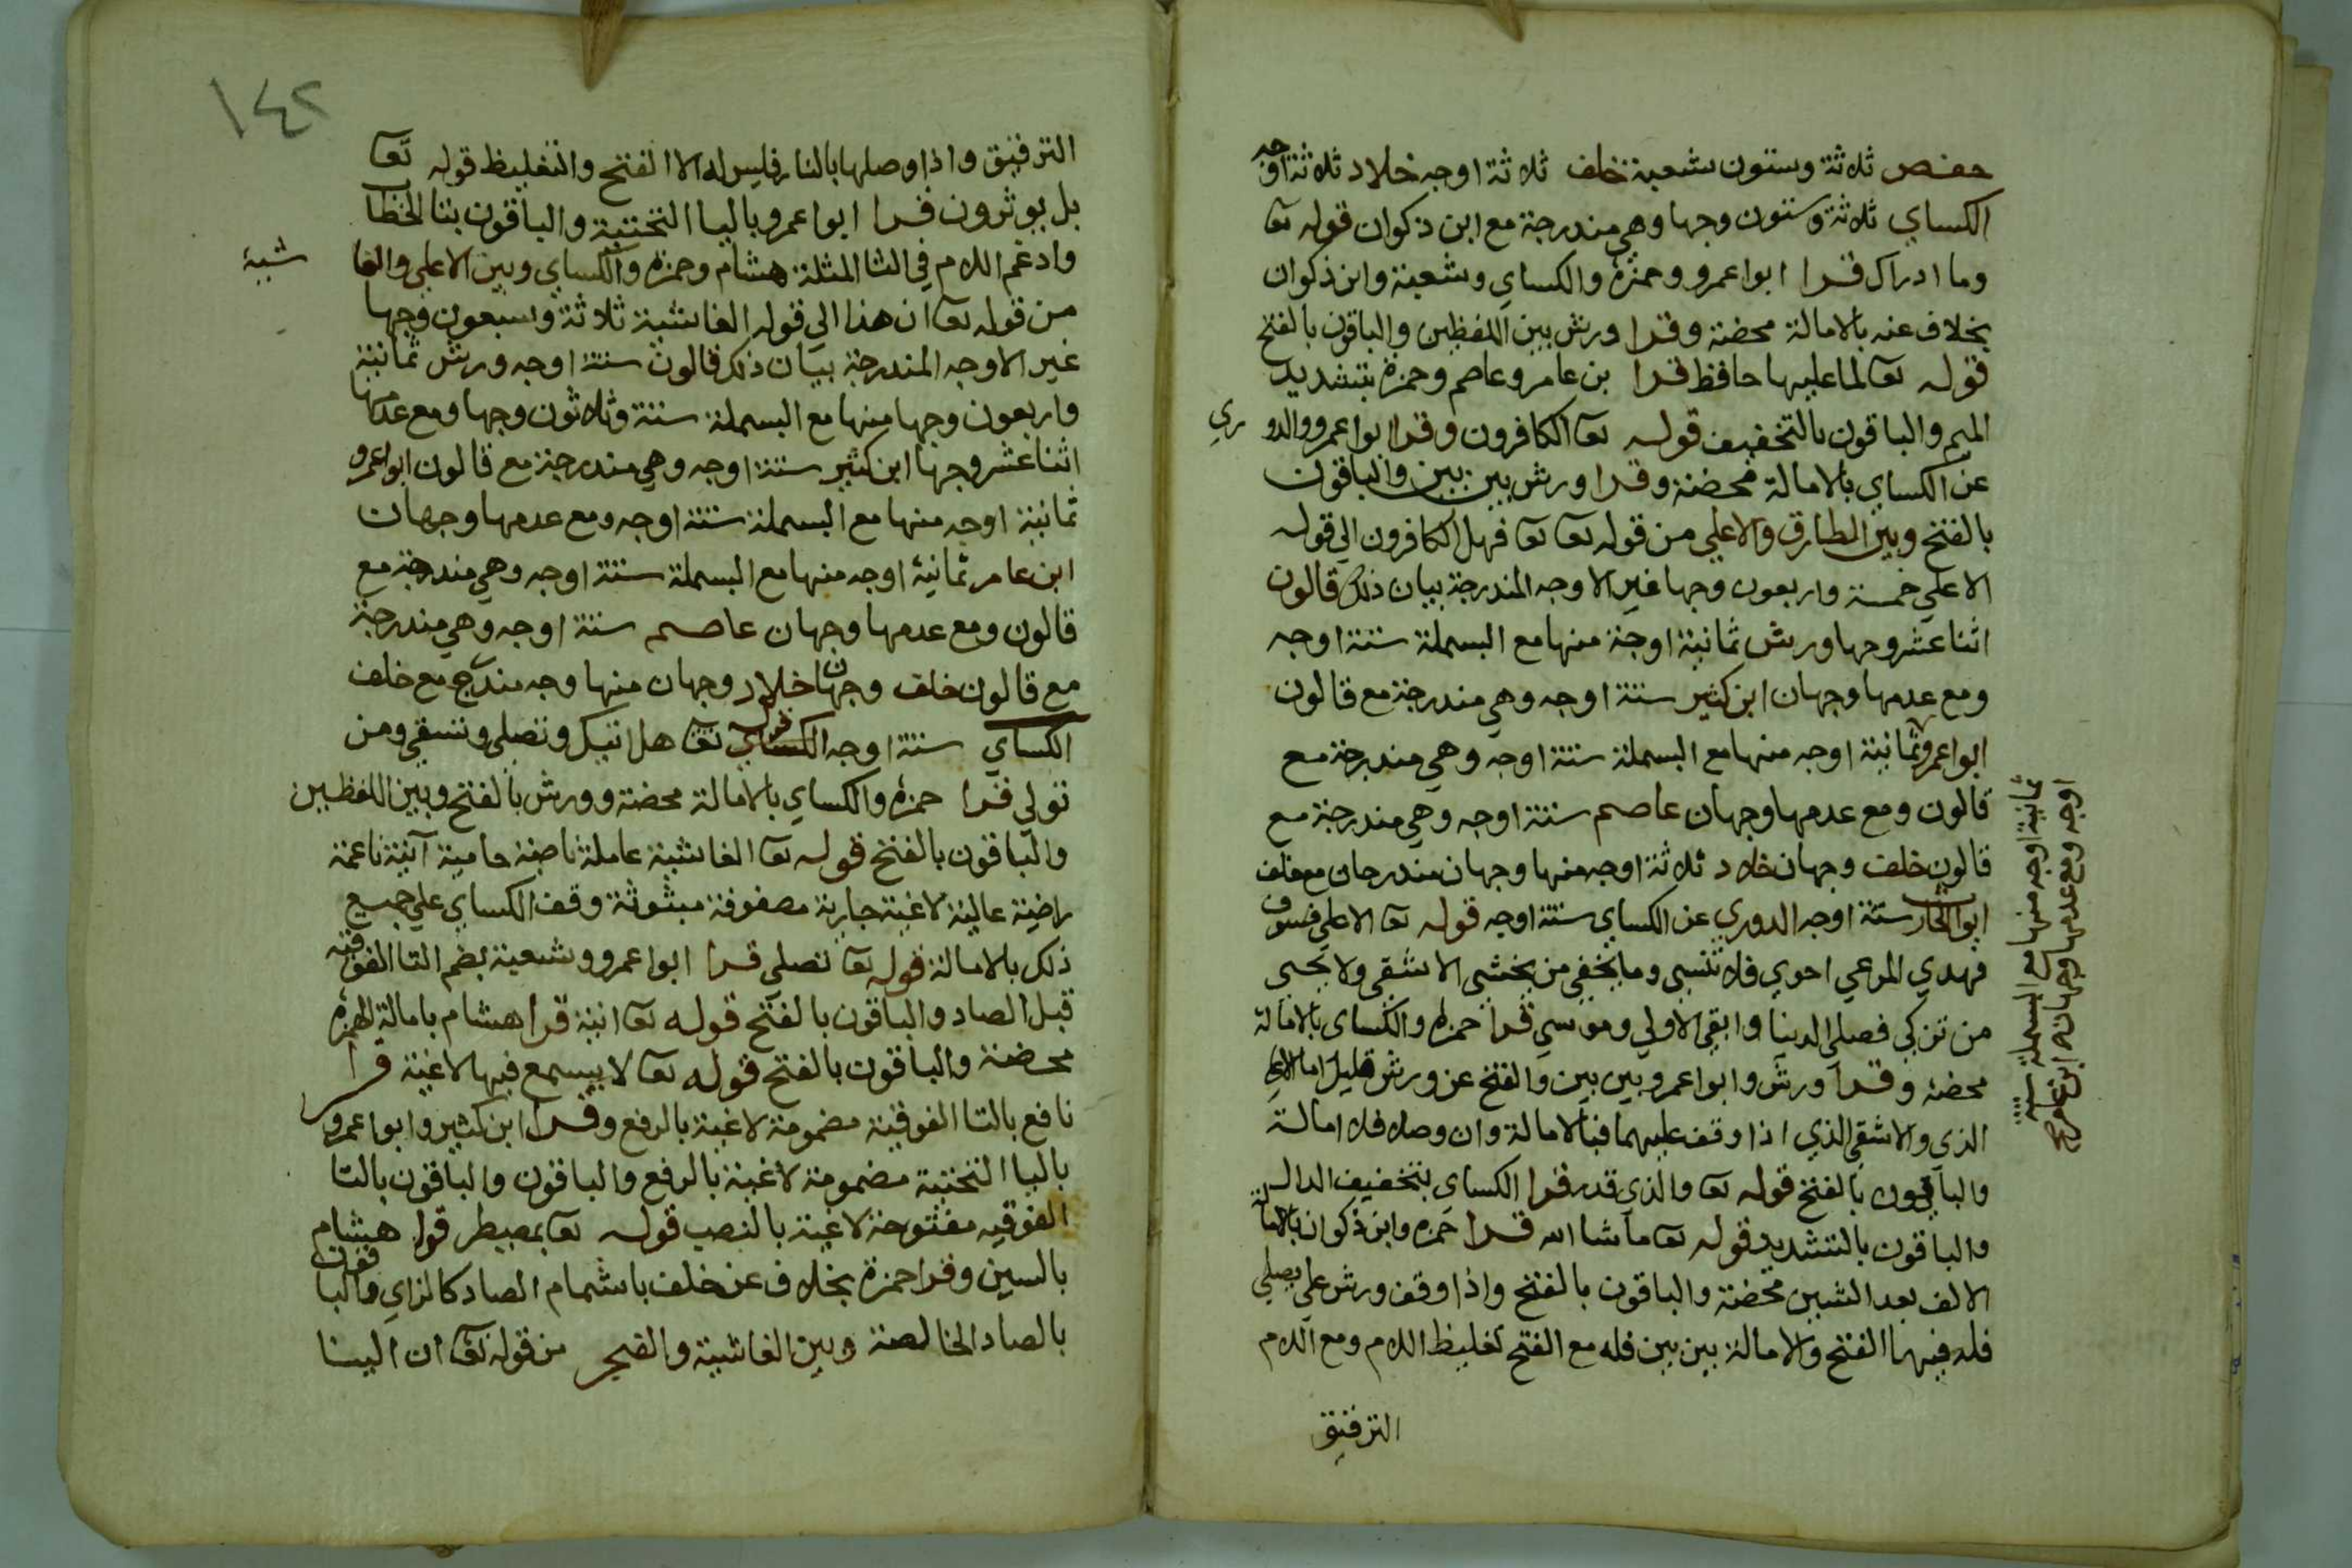 حفص ثلاثة وستون شعبة خلف ثلاثة اوجه خلاد ثلاثة اوجه
الكساي ثلاثة وستون وجها وهي مندرجة مع ابن ذكوان قوله تعا
وما ادراك قرا ابو اعمرو وحمزة والكساي وشعبة وابن ذكوان
بخلاف عنه بالامالة محضة وقرا ورش بين اللفظين والباقون بالفتح
قوله تعا لما عليها حافظ قرا بن عامر وعاصم وحمزة بتشديد
الميم والباقون بالتخفيف قوله تعا الكافرون وقرا ابو اعمرو والدوري
عن الكساي بالامالة محضة وقرا ورش بين بين والباقون
بالفتح وبين الطارق والاعلي من قوله تعا تعا فمهل الكافرون الي قوله
الاعلي خمسة واربعون وجها غير الاوجه المندرجة بيان ذلك قالون
اثنا عشر وجها ورش ثمانية اوجة منها مع البسملة ستة اوجه
ومع عدمها وجهان ابن كثير ستة اوجه وهي مندرجة مع قالون
ابو اعمرو ثمانية اوجه منها مع البسملة ستة اوجه وهي مندرجة مع
قالون ومع عدمها وجهان عاصم ستة اوجه وهي مندرجة مع
قالون خلف وجهان خلاد ثلاثة اوجه منها وجهان مندرجان مع خلف
ابو الحارث ستة اوجه الدوري عن الكساي ستة اوجه قوله تعا الاعلي فسوي
فهدي المرعي احوي فلا تنسي وما يخفي من يخشي الاشقي ولا يحيي
من تزكي فصلي الدنيا وابقي الاولي وموسي قرا حمزه والكساي بالامالة
محضة وقرا ورش وابو اعمرو بين بين والفتح عن ورش قليل اما الاعلي
الذي والاشقي الذي اذا وقف عليهما فبالامالة وان وصل فلا امالة
والباقون بالفتح قوله تعا والذي قدر قرا الكساي بتخفيف الدال
والباقون بالتشديد قوله تعا ما شا الله قرا حمزه وابن ذكوان بالامالة
الالف بعد الشين محضة والباقون بالفتح واذا وقف ورش علي يصلي
فله فيها الفتح والامالة بين بين فله مع الفتح تغليظ اللام ومع اللام
الترقيق
ثمانية اوجه منها مع البسملة ستة
اوجه ومع عدمها وجهان ابن عامر
١٤٢
الترقيق واذا وصلها بالنار فليس له الا الفتح والتغليظ قوله تعا
بل يوثرون قرا ابو اعمرو باليا التحتية والباقون بتا الخطاب
وادغم اللام في الثا المثلثة هشام وحمزه والكساي وبين الاعلي والغاشية
من قوله تعا ان هذا الي قوله الغاشية ثلاثة وسبعون وجها
غير الاوجه المندرجة بيان ذلك قالون ستة اوجه ورش ثمانية
واربعون وجها منها مع البسملة ستة وثلاثون وجها ومع عدمها
اثنا عشر وجها ابن كثير ستة اوجه وهي مندرجة مع قالون ابو اعمرو
ثمانية اوجه منها مع البسملة ستة اوجه ومع عدمها وجهان
ابن عامر ثمانية اوجه منها مع البسملة ستة اوجه وهي مندرجة مع
قالون ومع عدمها وجهان عاصم ستة اوجه وهي مندرجة
مع قالون خلف وجهان خلاد وجهان منها وجه مندرج مع خلف
الكساي ستة اوجه قوله تعا هل اتيك وتصلي وتسقي ومن
تولي قرا حمزه والكساي بالامالة محضة وورش بالفتح وبين اللفظين
والباقون بالفتح قوله تعا الغاشية عاملة ناصبة حامية آنية ناعمة
راضية عالية لاغية جارية مصفوفة مبثوثة وقف الكساي علي جميع
ذلك بالامالة قوله تعا تصلي قرا ابو اعمرو وشعبة بضم التا الفوقية
قبل الصاد والباقون بالفتح قوله تعا انية قرا هشام بامالة الهمزه
محضة والباقون بالفتح قوله تعا لا يسمع فيها لاغية قرا
نافع بالتا الفوقية مضمومة لاغية بالرفع وقرا ابن كثير وابو اعمرو
باليا التحتية مضمومة لاغية بالرفع والباقون والباقون بالتا
الفوقيه مفتوحة لاغية بالنصب قوله تعا بمصيطر قرا هشام
بالسين وقرا حمزة بخلاف عن خلف باشمام الصاد كالزاي والباقون
بالصاد الخالصة وبين الغاشية والفجر من قوله تعا ان الينا